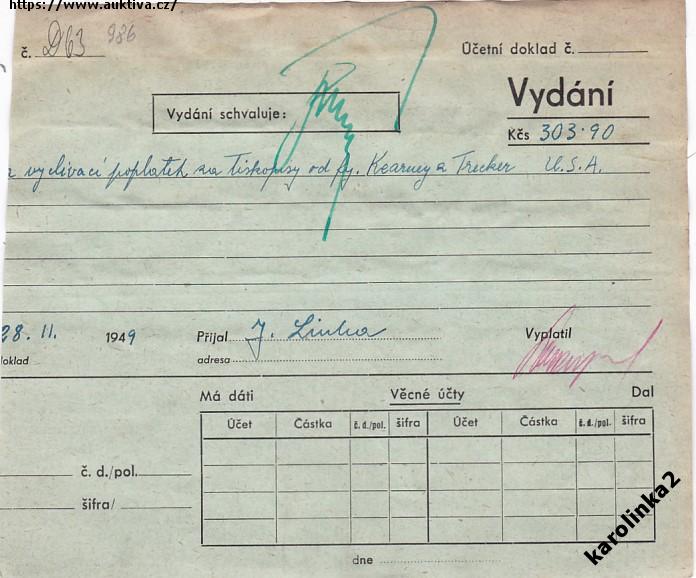 https://www.auktiva.cz/
č. D63 986
Účetní doklad č.
Vydání
Vydání schvaluje:
Kčs 303·90
poplatek za tiskopisy od fy. Kearney a Trecker U.S.A.
28. 11. 1949
Přijal J. Linha
Vyplatil
doklad
adresa
Má dáti Věcné účty Dal
Účet Částka č. d./pol. šifra Účet Částka č. d./pol. šifra
č. d./pol.
šifra/
dne
karolinka2